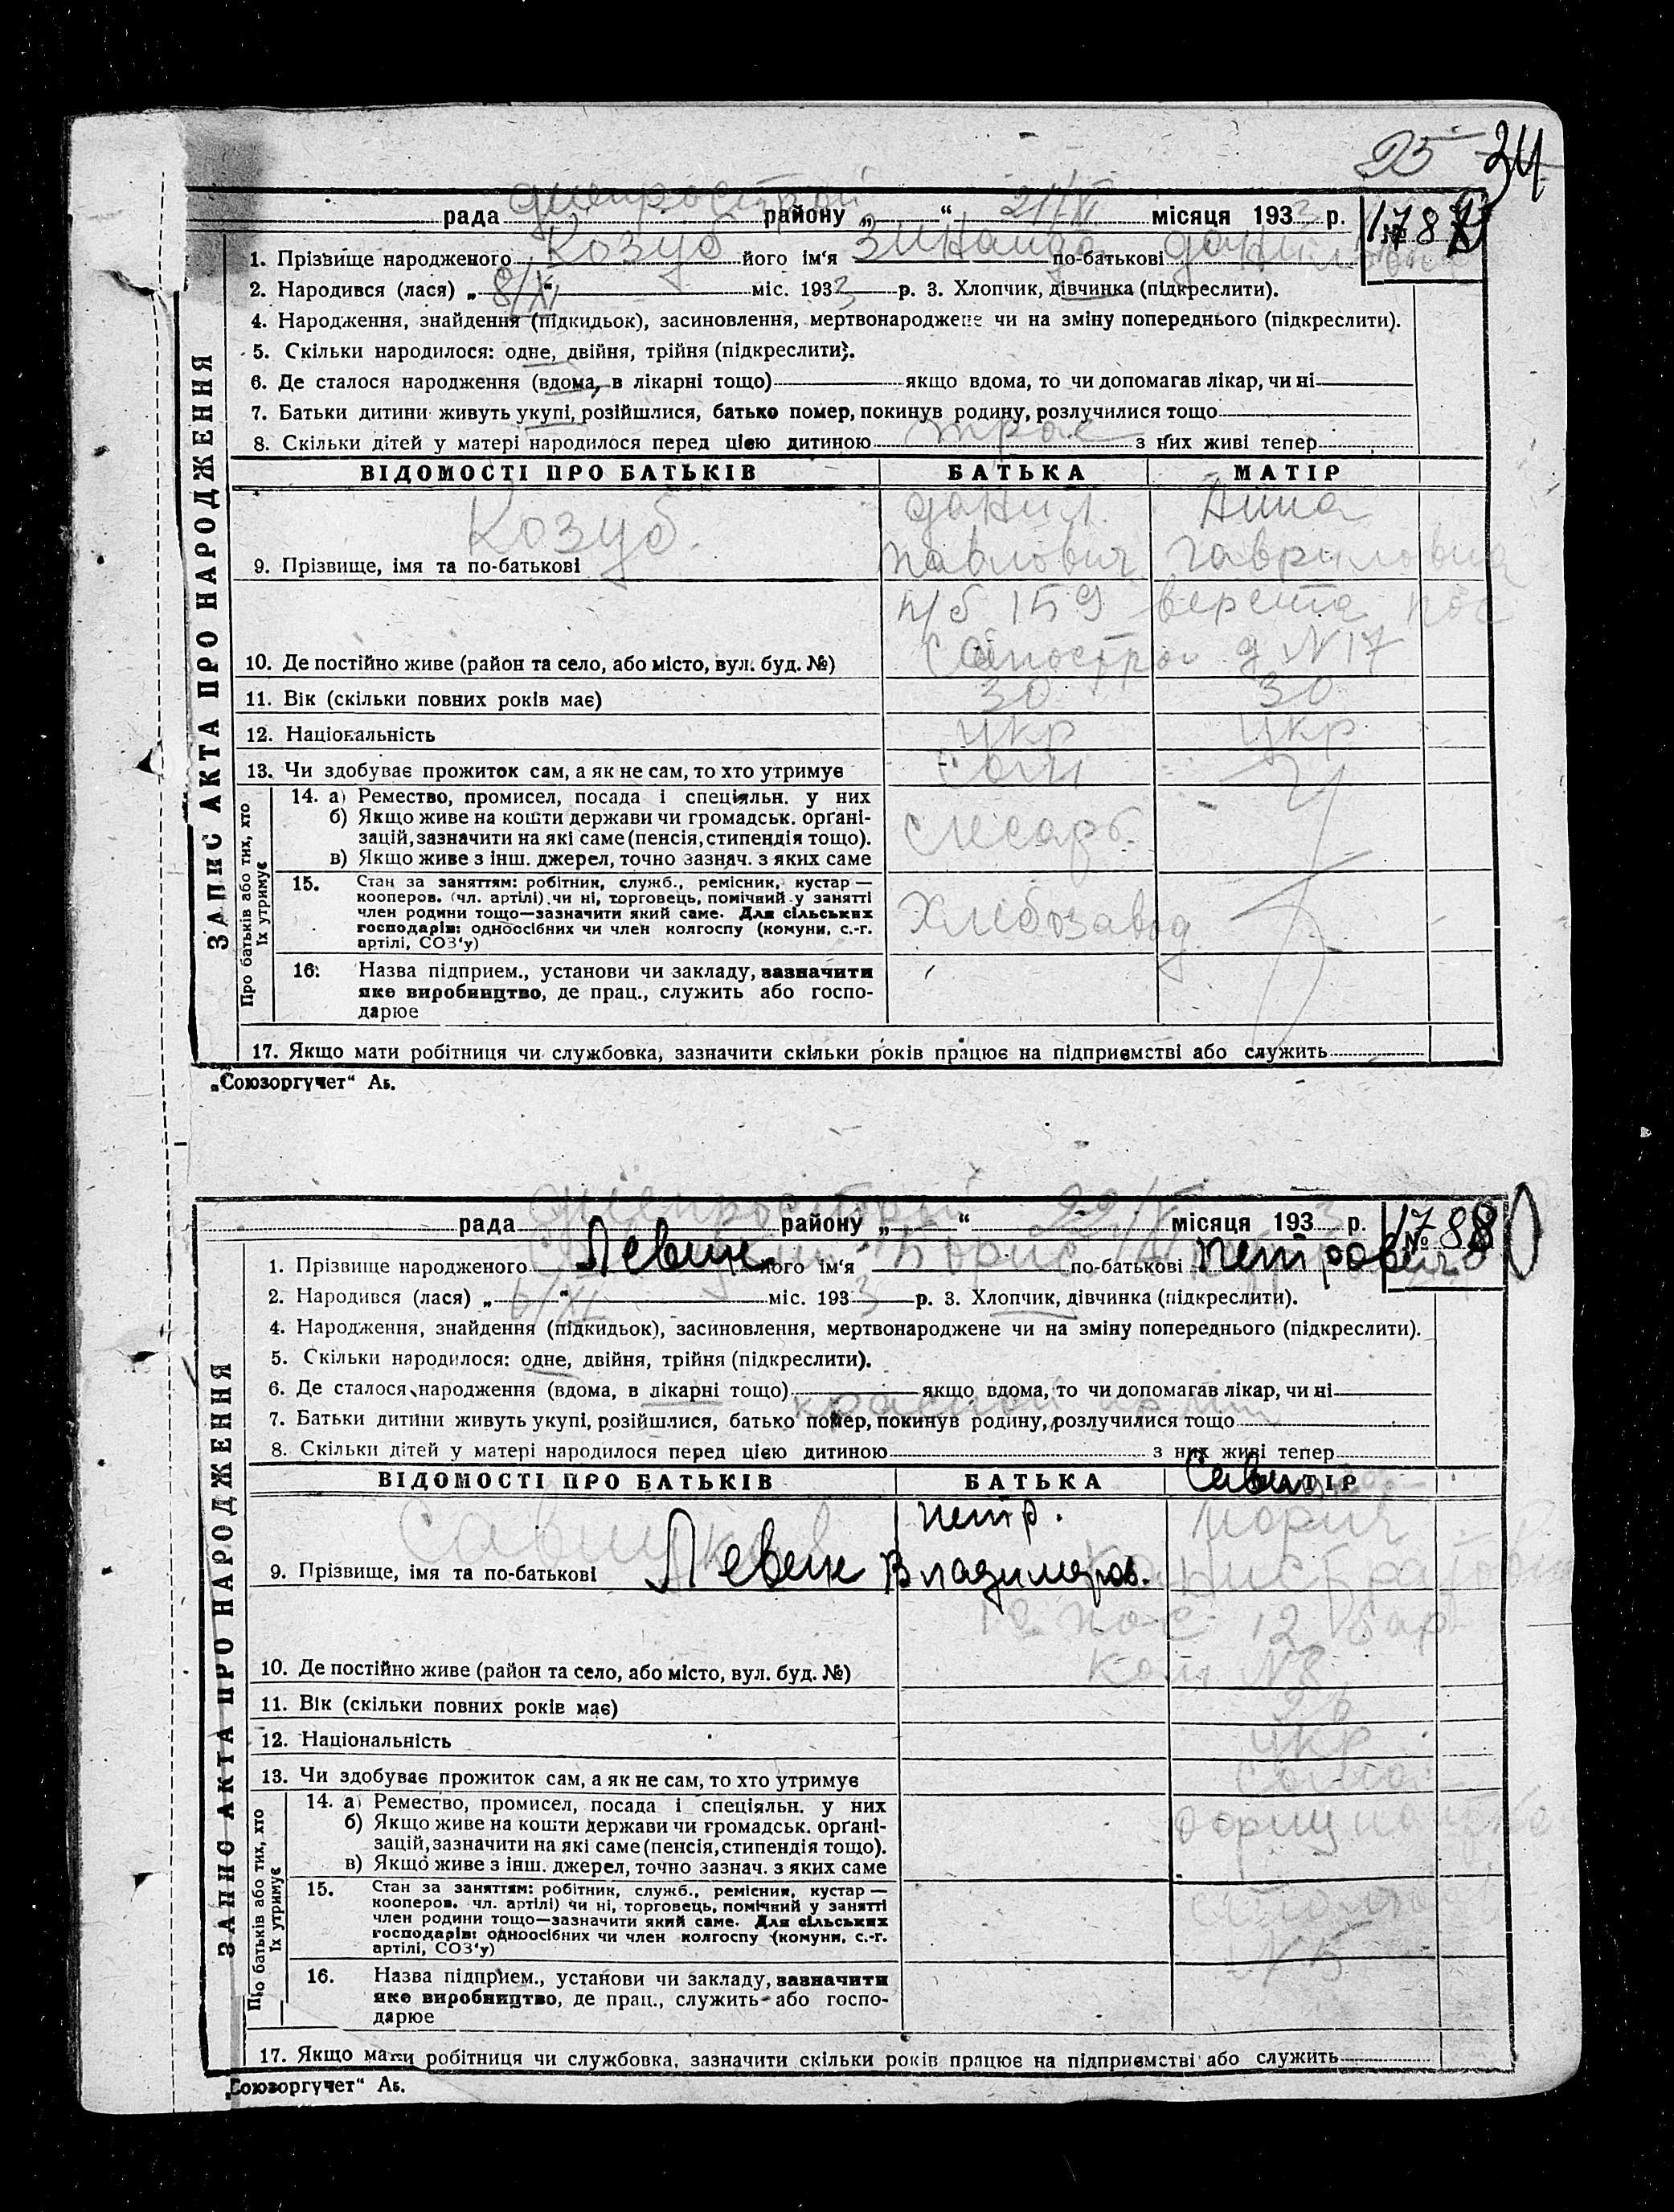 25 34
рада Днепрострой району „ “ 21/XI місяця 1933 р. № 1787
1. Прізвище народженого Козуб його ім'я Зинаида по-батькові
2. Народився (лася) „ 8/XI “ міс. 1933 р. 3. Хлопчик, дівчинка (підкреслити).
4. Народження, знайдення (підкидьок), засиновлення, мертвонароджене чи на зміну попереднього (підкреслити).
5. Скільки народилося: одне, двійня, трійня (підкреслити).
6. Де сталося народження (вдома, в лікарні тощо) якщо вдома, то чи допомагав лікар, чи ні
7. Батьки дитини живуть укупі, розійшлися, батько помер, покинув родину, розлучилися тощо
8. Скільки дітей у матері народилося перед цією дитиною трое з них живі тепер
ЗАПИС АКТА ПРО НАРОДЖЕННЯ
ВІДОМОСТІ ПРО БАТЬКІВ БАТЬКА МАТІР
Козуб Данил Анна
9. Прізвище, імя та по-батькові Павлович Гавриловна
п/б 159 верста пос
10. Де постійно живе (район та село, або місто, вул. буд. №) д N 17
11. Вік (скільки повних років має) 30 30
12. Національність укр укр
13. Чи здобуває прожиток сам, а як не сам, то хто утримує сам
Про батьків або тих, хто їх утримує
14. а) Ремество, промисел, посада і спеціяльн. у них
б) Якщо живе на кошти держави чи громадськ. орґані-
зацій, зазначити на які саме (пенсія, стипендія тощо). слесарь
в) Якщо живе з інш. джерел, точно зазнач. з яких саме
15. Стан за заняттям: робітник, служб., ремісник, кустар —
кооперов. (чл. артілі) чи ні, торговець, помічний у занятті
член родини тощо—зазначити який саме. Для сільських Хлібозавод
господарів: одноосібних чи член колгоспу (комуни, с.-г.
артілі, СОЗ'у)
16. Назва підприєм., установи чи закладу, зазначити
яке виробництво, де прац., служить або госпо-
дарює
17. Якщо мати робітниця чи службовка, зазначити скільки років працює на підприємстві або служить
„Союзоргучет“ Аб.
рада Днепрострой району „ “ місяця 1933 р. № 1788
1. Прізвище народженого Левин його ім'я Борис по-батькові Петрович
2. Народився (лася) „ 6/XI “ міс. 1933 р. 3. Хлопчик, дівчинка (підкреслити).
4. Народження, знайдення (підкидьок), засиновлення, мертвонароджене чи на зміну попереднього (підкреслити).
5. Скільки народилося: одне, двійня, трійня (підкреслити).
6. Де сталося народження (вдома, в лікарні тощо) якщо вдома, то чи допомагав лікар, чи ні
7. Батьки дитини живуть укупі, розійшлися, батько помер, покинув родину, розлучилися тощо
8. Скільки дітей у матері народилося перед цією дитиною з них живі тепер
ЗАПИС АКТА ПРО НАРОДЖЕННЯ
ВІДОМОСТІ ПРО БАТЬКІВ БАТЬКА МАТІР
Петр. Мария
9. Прізвище, імя та по-батькові Левин Владимиров.
пос 12 бар
10. Де постійно живе (район та село, або місто, вул. буд. №) ком N 8
11. Вік (скільки повних років має) 26
12. Національність укр
13. Чи здобуває прожиток сам, а як не сам, то хто утримує сама
Про батьків або тих, хто їх утримує
14. а) Ремество, промисел, посада і спеціяльн. у них
б) Якщо живе на кошти держави чи громадськ. орґані-
зацій, зазначити на які саме (пенсія, стипендія тощо).
в) Якщо живе з інш. джерел, точно зазнач. з яких саме
15. Стан за заняттям: робітник, служб., ремісник, кустар —
кооперов. чл. артілі) чи ні, торговець, помічний у занятті
член родини тощо—зазначити який саме. Для сільських
господарів: одноосібних чи член колгоспу (комуни, с.-г.
артілі, СОЗ'у) N 5
16. Назва підприєм., установи чи закладу, зазначити
яке виробництво, де прац., служить або госпо-
дарює
17. Якщо мати робітниця чи службовка, зазначити скільки років працює на підприємстві або служить
„Союзоргучет“ Аб.